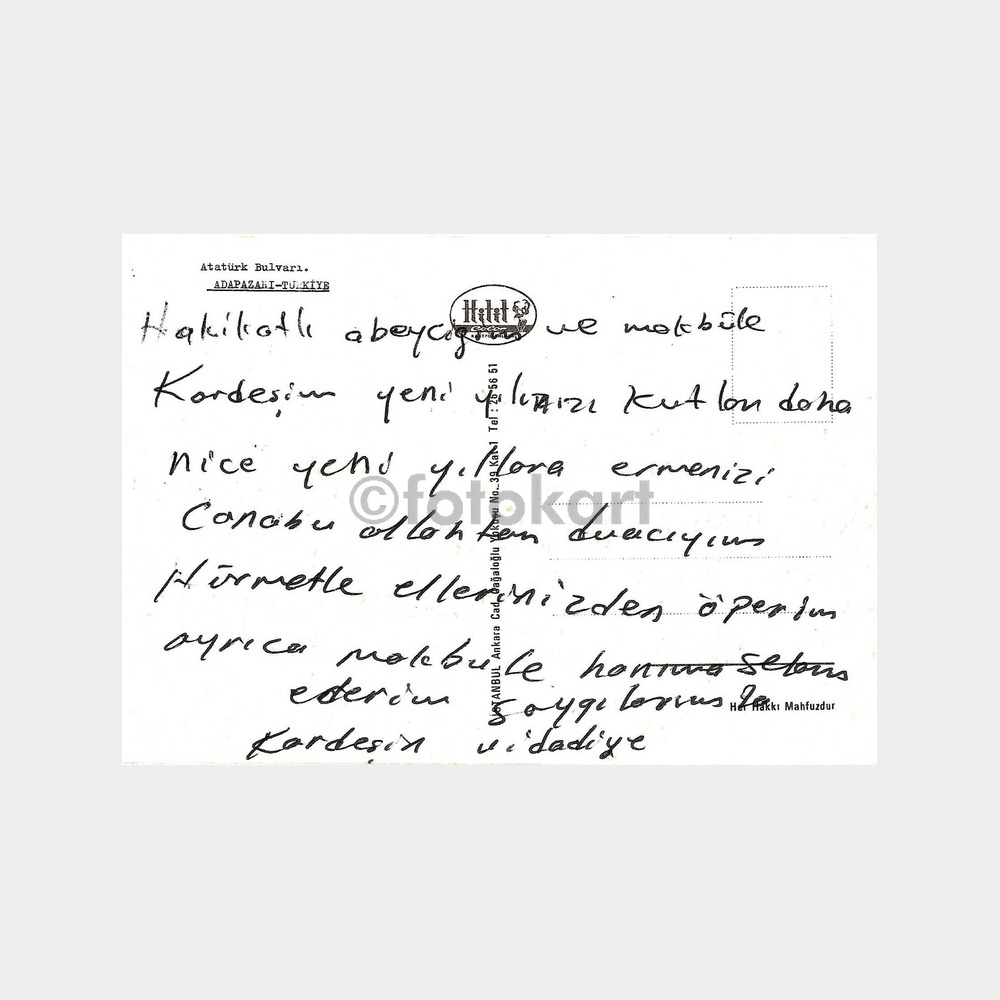 Atatürk Bulvarı.
ADAPAZARI-TÜRKİYE
Hitit
Hakikatlı abeyciğim ve makbüle
Kardeşim yeni yılınızı kutlan daha
nice yeni yıllara ermenizi
Canabu allahtan duacıyım
Hürmetle ellerinizden öperim
ayrıca makbule hanıma selam
ederim saygılarımla
Kardeşin vidadiye
İSTANBUL Ankara Cad. Cağaloğlu Yokuşu No. 39 Kat 1 Tel : 26 56 51
Her Hakkı Mahfuzdur
©fotokart